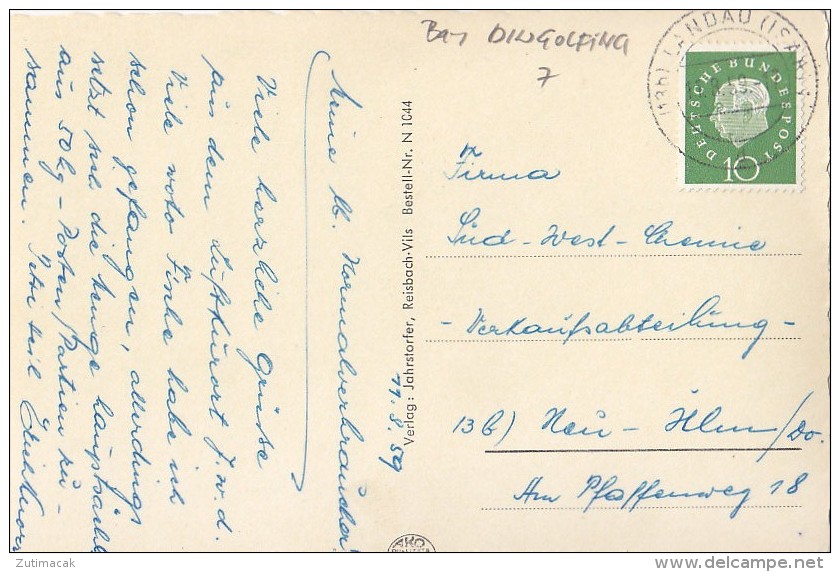 Bay DINGOLFING
7
(13b) LANDAU (ISAR)
DEUTSCHE BUNDESPOST
10
11.8.59
Meine lb. Normalverbraucher!
Viele herzliche Grüsse
aus dem Luftkurort J.w.d.
Viele rote Fische habe ich
schon gefangen, allerdings
setzt sich die Menge hauptsächl.
aus 50 kg - Posten/Partien zu-
sammen.
Verlag: Jahrstorfer, Reisbach-Vils Bestell-Nr. N 1044
Firma
Süd-West-Chemie
- Verkaufsabteilung -
13b) Neu-Ulm/Do.
Am Pfaffenweg 18
AKO
Zutimacak
delcampe.net